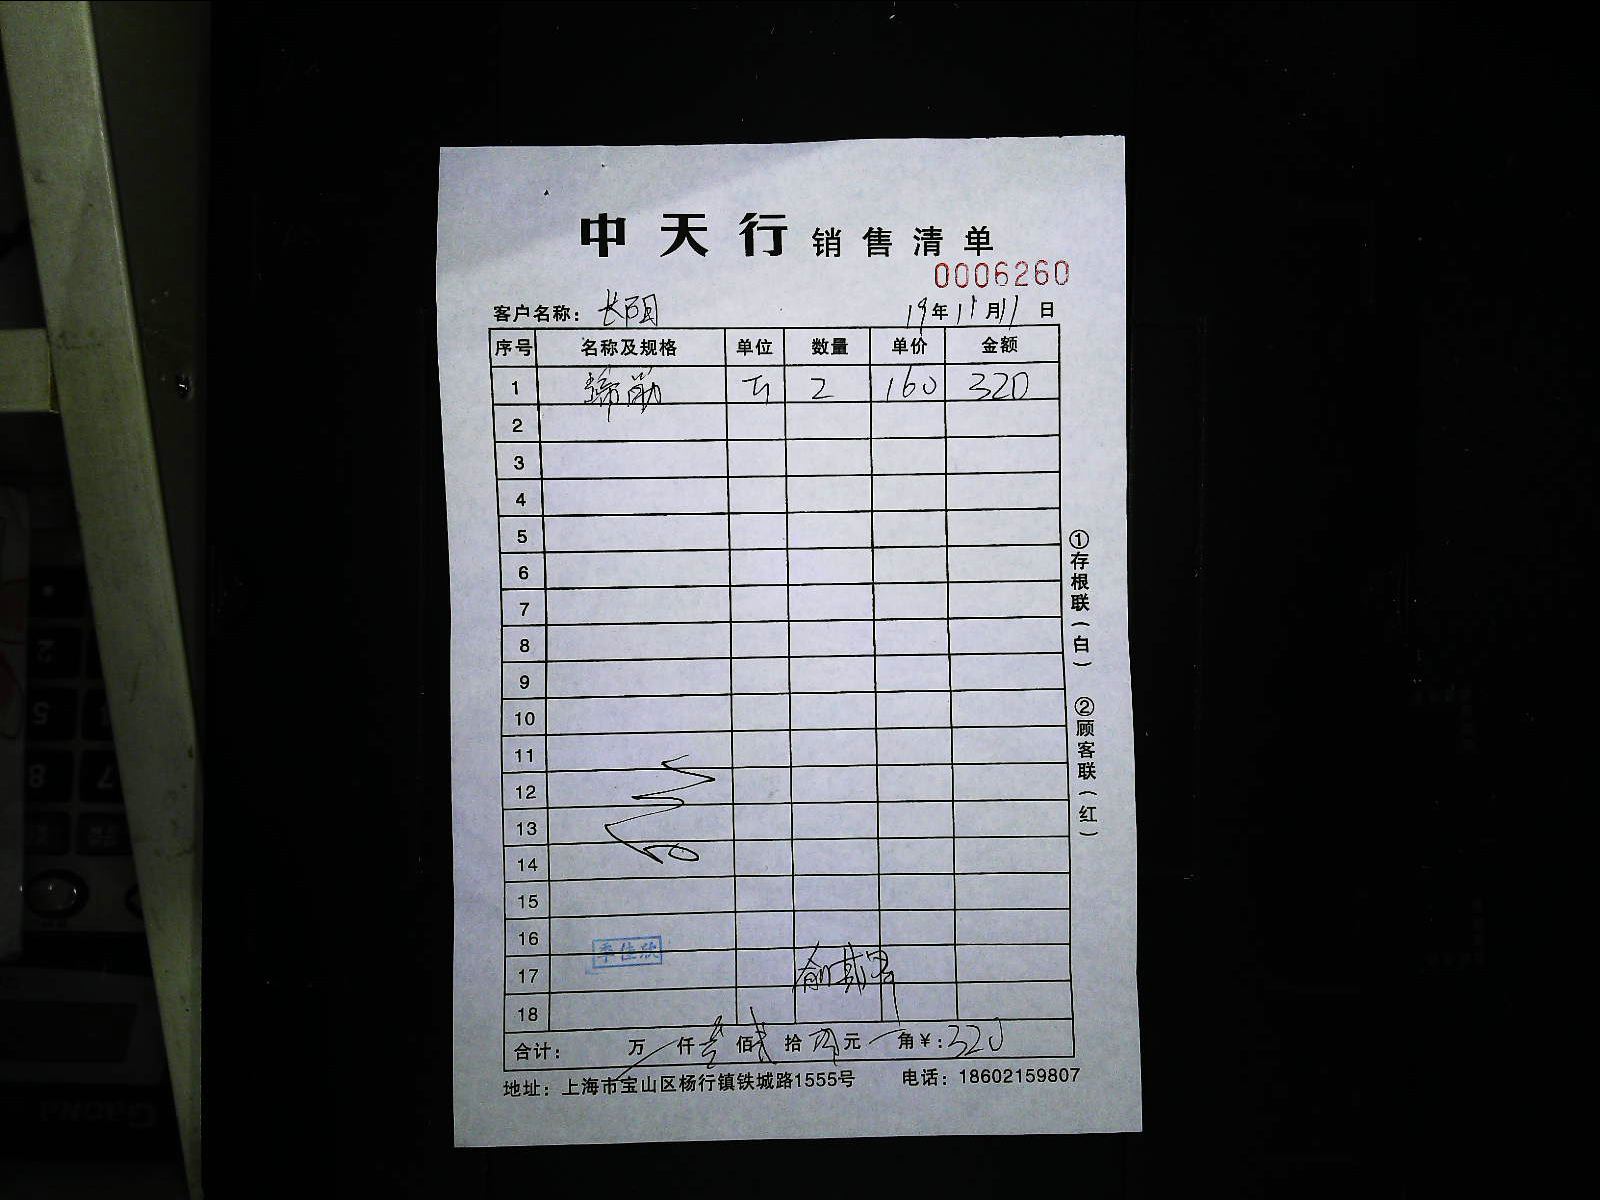 中天行 销售清单
0006260
客户名称： 长阳 19年11月11日
序号 名称及规格 单位 数量 单价 金额
1 蹄筋 2 160 320
2
3
4
5
6
7
8
9
10
11
12
13
14
15
16
17
18
合计： 万 仟 佰 拾 元 角 ￥：320
地址：上海市宝山区杨行镇铁城路1555号 电话：18602159807
①存根联（白） ②顾客联（红）
李佳欣